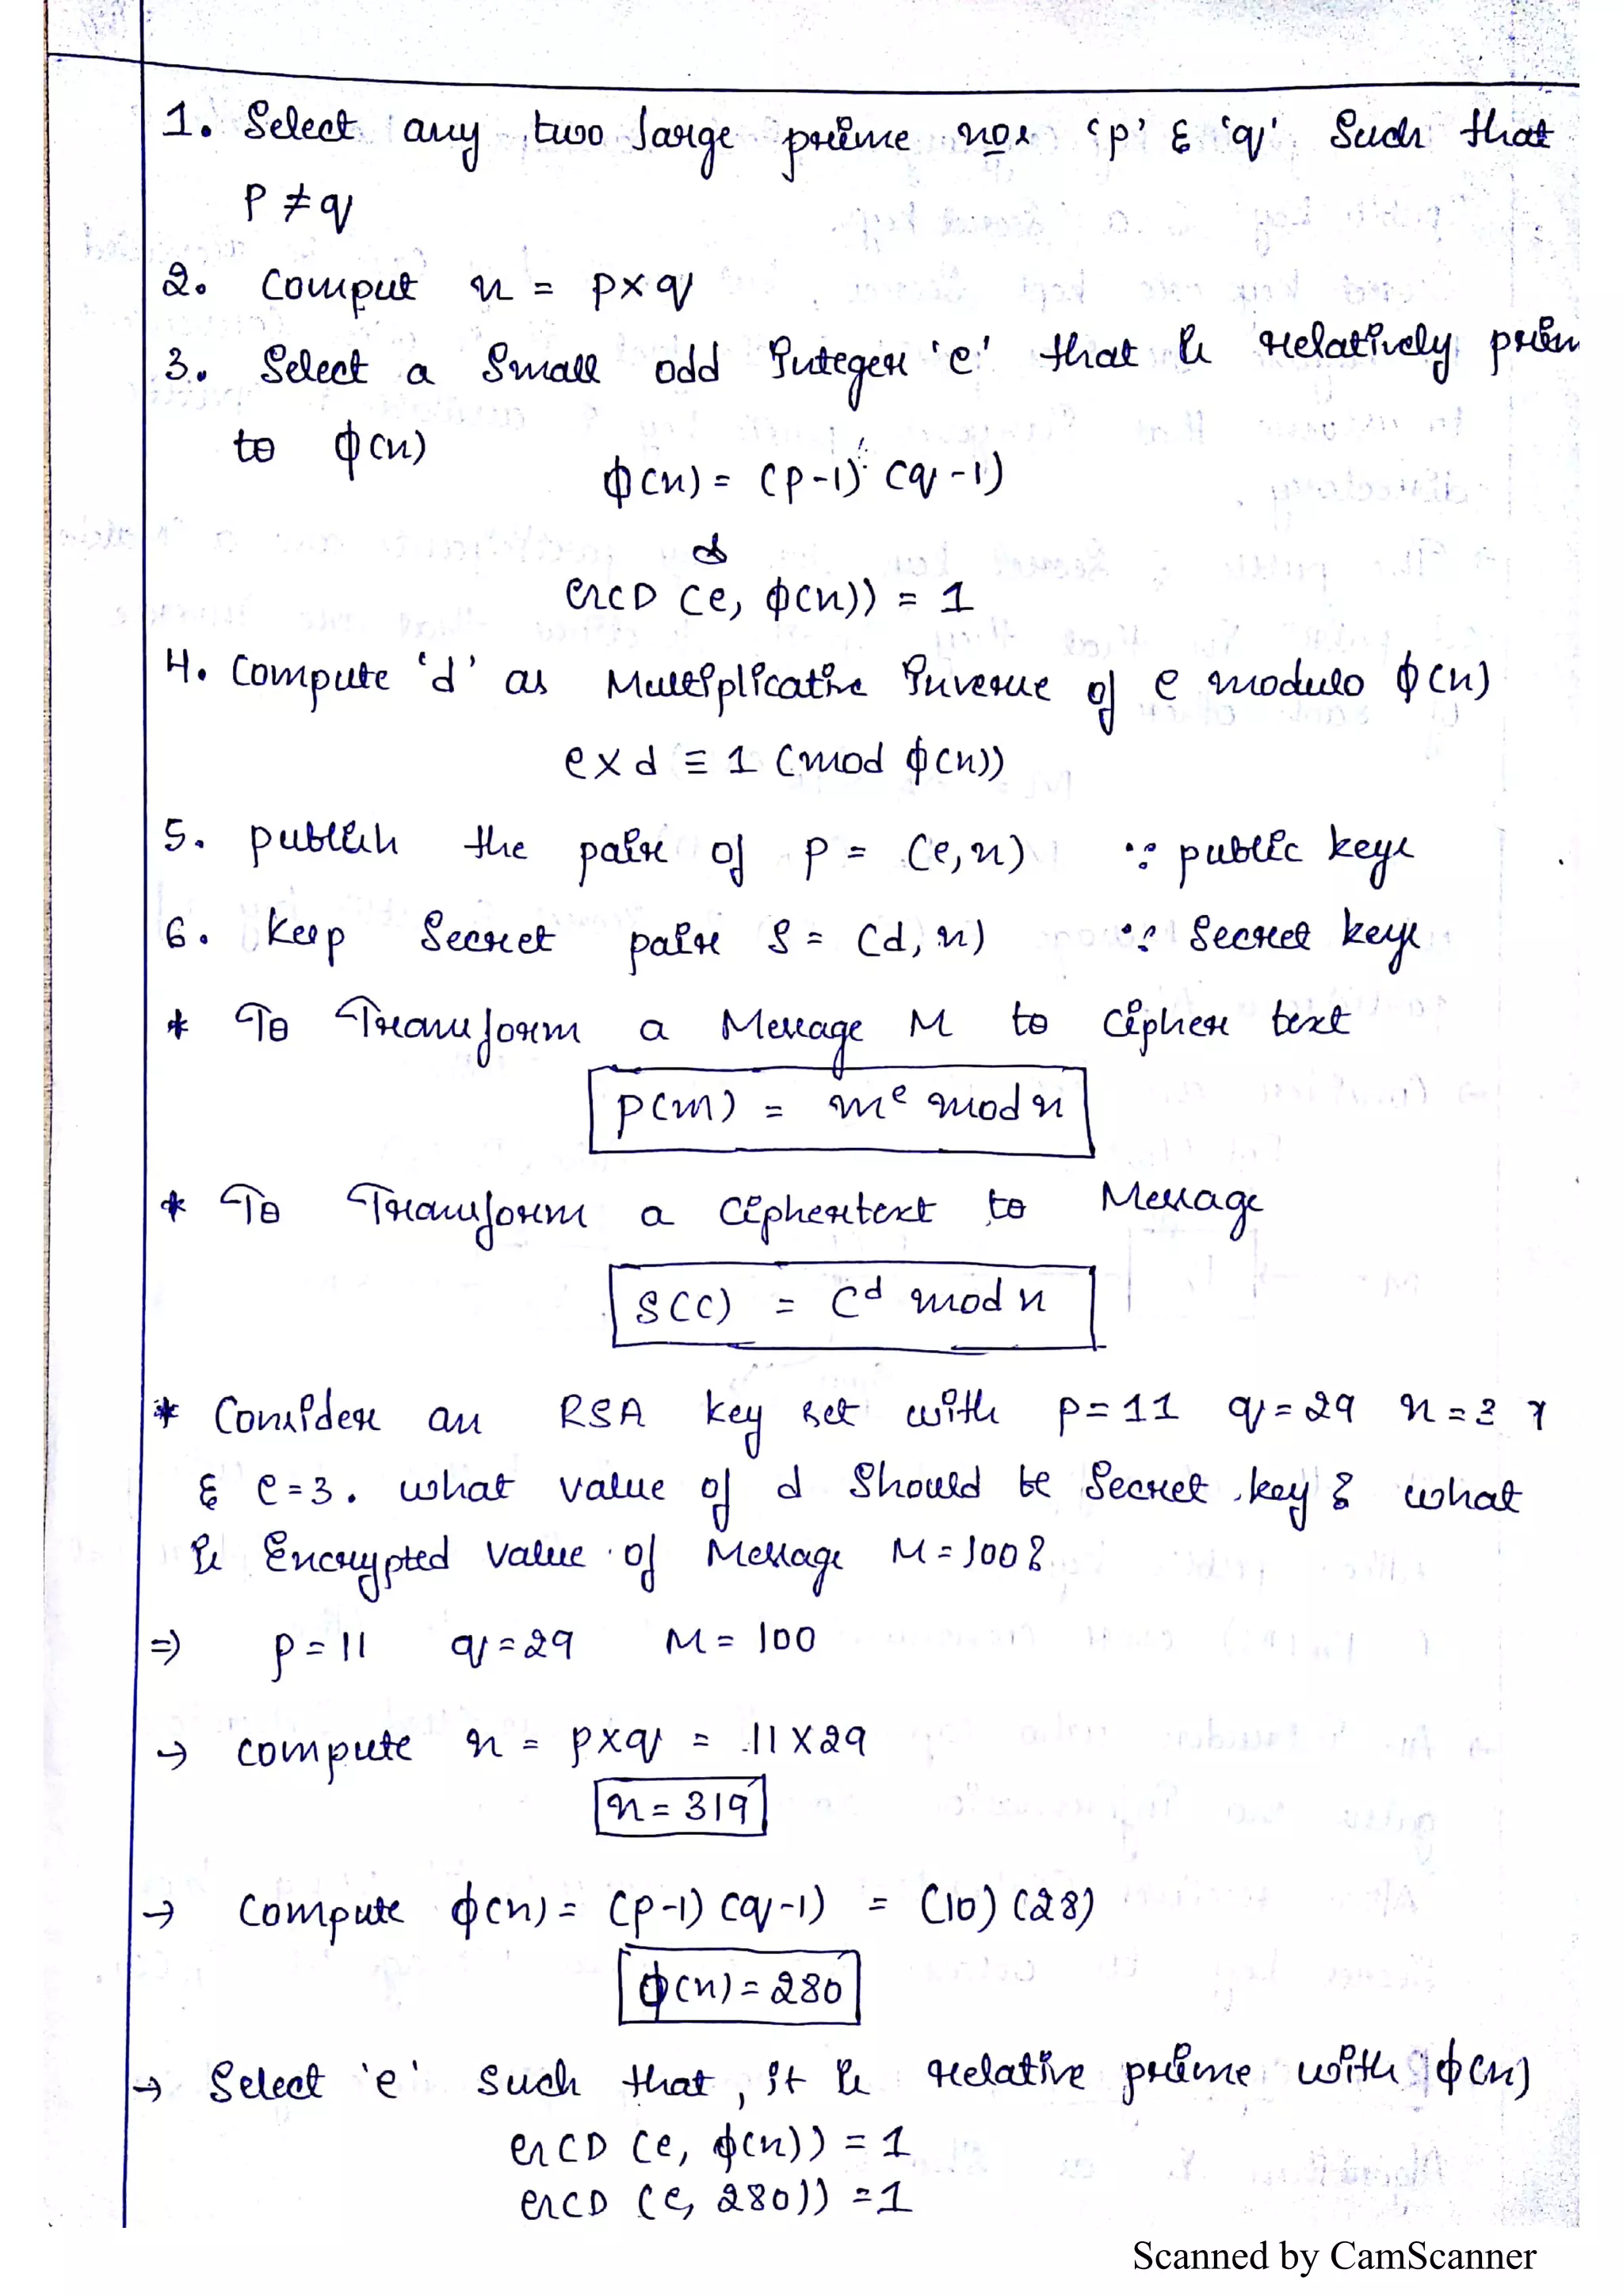 1. Select any two large prime nos 'p' & 'q' Such that
P ≠ q
2. Comput n = p×q
3. Select a Small odd Integer 'e' that is relatively prim
to ϕ(n)
ϕ(n) = (p-1) (q-1)
&
GCD (e, ϕ(n)) = 1
4. Compute 'd' as Multiplicative Inverse of e modulo ϕ(n)
e×d ≡ 1 (mod ϕ(n))
5. publish the pair of P = (e,n) ∵ public keys
6. keep Secret pair S = (d, n) ∵ Secret keys
* To Transform a Message M to Cipher text
P(m) = mᵉ mod n
* To Transform a Ciphertext to Message
S(c) = Cᵈ mod n
* Consider an RSA key set with p=11 q=29 n=3
& e=3. what value of d Should be Secret key & what
is Encrypted value of Message M=100?
⇒ p=11 q=29 M=100
→ compute n = p×q = 11×29
n=319
→ Compute ϕ(n) = (p-1) (q-1) = (10) (28)
ϕ(n)=280
→ Select 'e' such that, it is relative prime with ϕ(n)
GCD (e, ϕ(n)) = 1
GCD (e, 280)) =1
Scanned by CamScanner